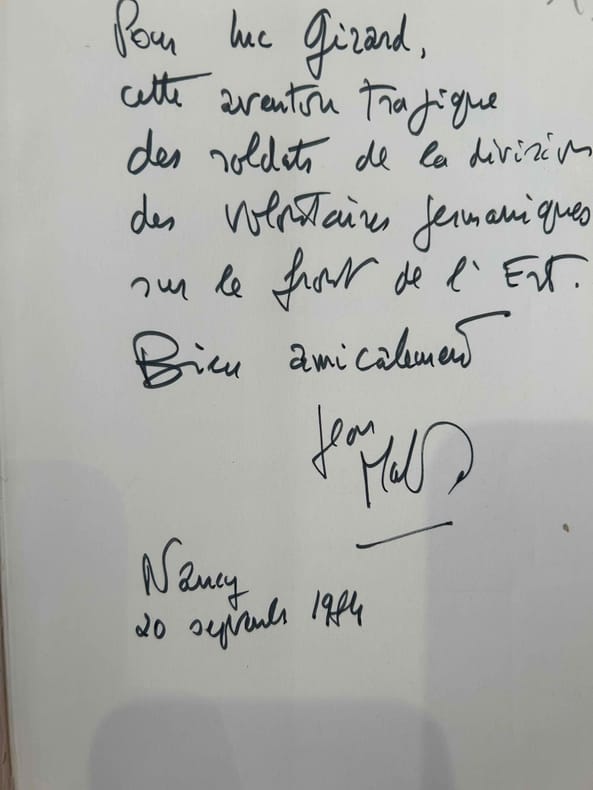 Pour Luc Girard,
cette aventure tragique
des soldats de la division
des volontaires germaniques
sur le front de l'Est.
Bien amicalement
Jean
Nancy
20 septembre 1984